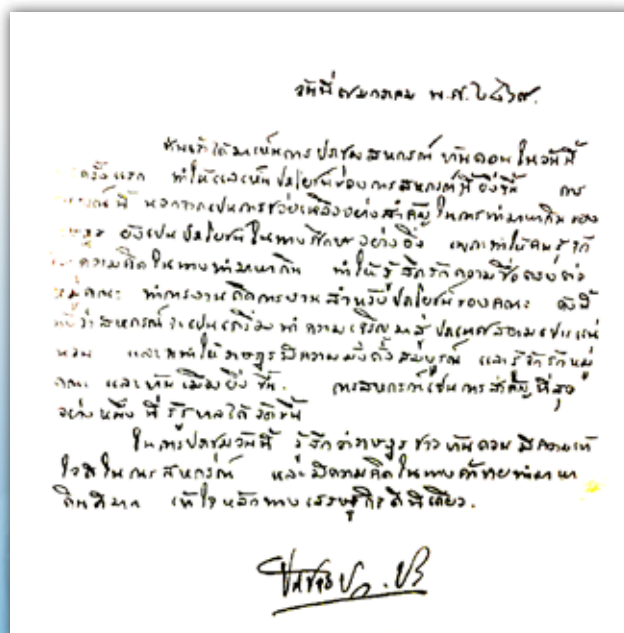 วันที่ ๗ มกราคม พ.ศ. ๒๔๖๙.
ข้าพเจ้าได้มาเห็นการประชุมสหกรณ์ บ้านดอน ในวันนี้
ครั้งแรก ทำให้แลเห็นประโยชน์ของการสหกรณ์นี้ยิ่งขึ้น การ
สหกรณ์นี้ นอกจากเป็นการช่วยเหลืออย่างสำคัญในการทำมาหากินของ
ราษฎร ยังเป็นประโยชน์ในทางศึกษาอย่างยิ่ง เพราะทำให้คนรู้จัก
ความคิดในทางทำมาหากิน ทำให้รู้สึกรักความซื่อตรงต่อ
หมู่คณะ ทำการงานคิดการงานสำหรับประโยชน์ของคณะ ดังนี้
ว่าสหกรณ์จะเป็นเครื่องทำความเจริญมาสู่ประเทศสยามเป็นแน่
และจะทำให้ราษฎรมีความมั่งคั่งสมบูรณ์ และรู้จักรักหมู่
คณะ และบ้านเมืองยิ่งขึ้น. การสหกรณ์เป็นการสำคัญที่สุด
อย่างหนึ่ง ที่รัฐบาลได้จัดขึ้น
ในการประชุมวันนี้ รู้สึกว่าราษฎรชาวบ้านดอน มีความเข้า
ใจดีในการสหกรณ์ และมีความคิดในทางค้าขายทำมาหา
กินดีมาก เข้าใจหลักทางเศรษฐกิจดีทีเดียว.